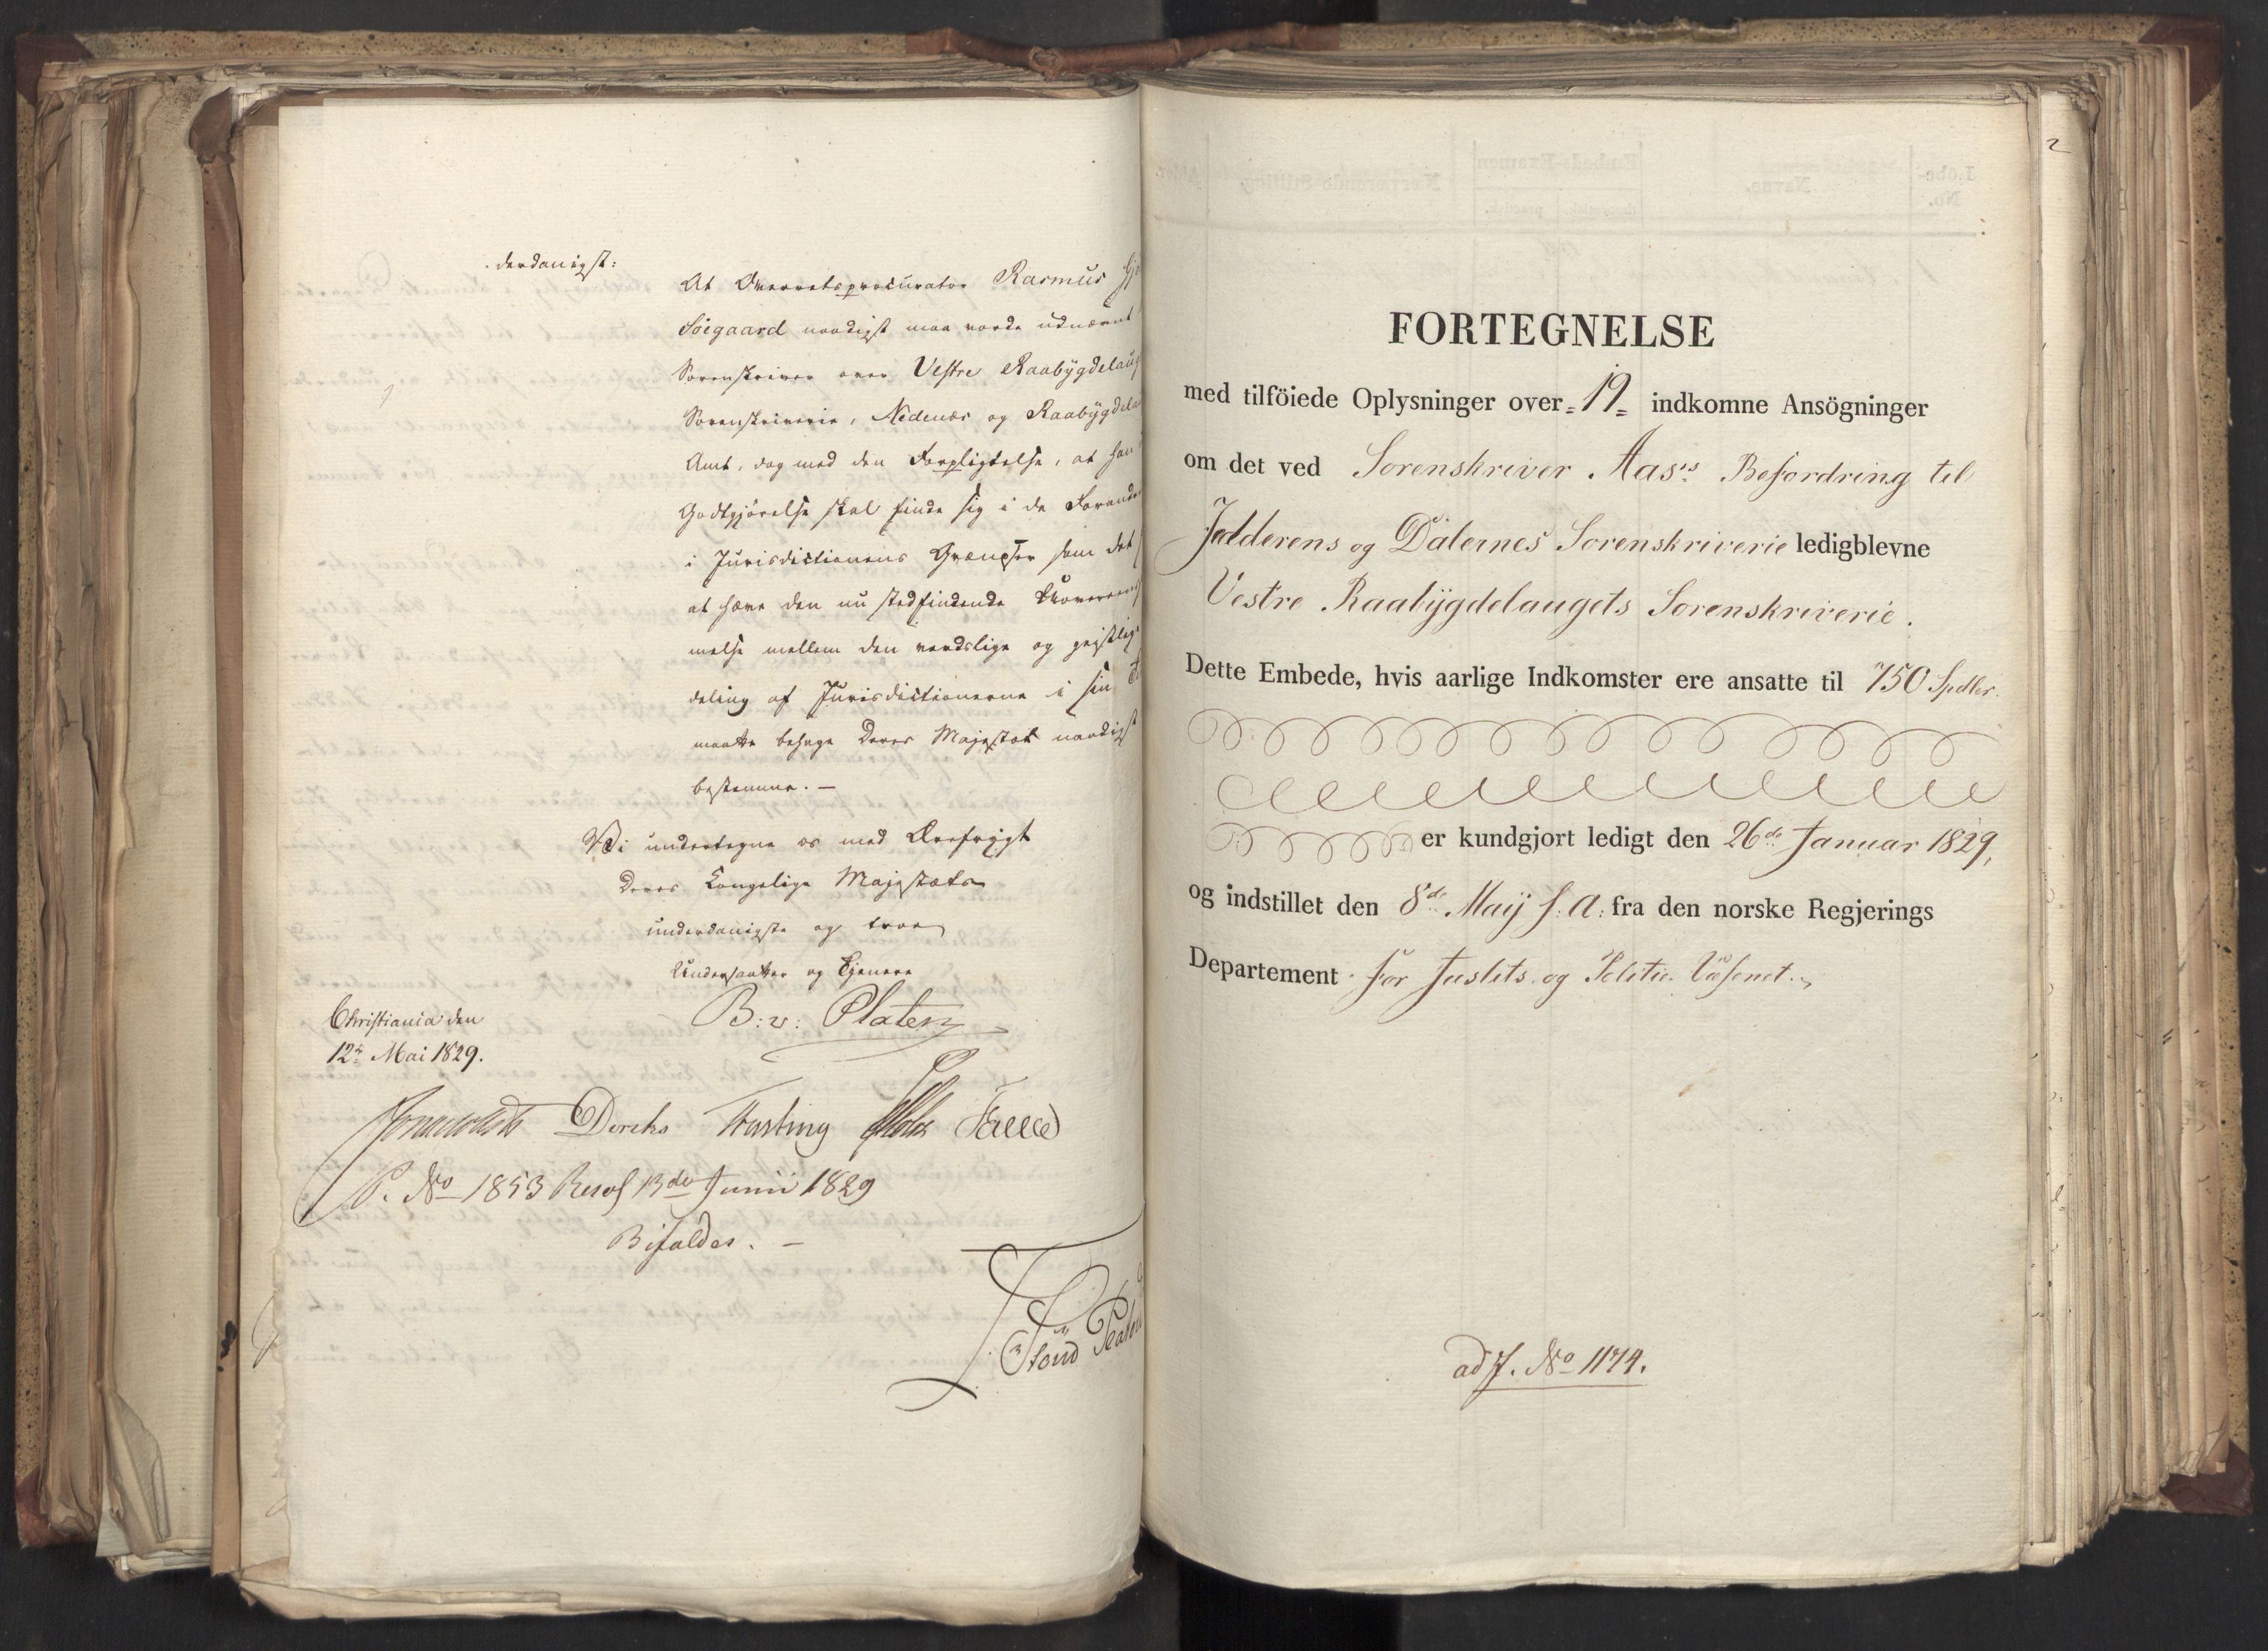 derdanigst:
At Overretsprocurator Rasmus
Soegaard naadigst maa vorde udnævnt
Sorenskriver over Vestre Raabygdelaug
Sorenskriverie, Nedenæs og Raabygdela
Amt, dog med den Forpligtelse, at han
Godtgjörelse skal finde sig i de Forandr
i Jurisdictionens Grændser som det
at hæve den nu stedfindende Uoverens
melse mellem den verdslige og geistlig
deling af Jurisdictionerne i sin
maatte behage Deres Majestæt naadigst
bestemme. —
Vi undertegne os med Ærefrygt
Deres Kongelige Majestæts
underdanigste og troe
Undersaatter og Tjenere
B: v: Platen
Christiania den
12te Mai 1829.
Diriks Fasting Holst
P. No 1853 Resol 13de Junii 1829
Bifaldes. —
2
FORTEGNELSE
med tilföiede Oplysninger over = 19 = indkomne Ansögninger
om det ved Sorenskriver Aas's Befordring til
Jedderens og Dalernes Sorenskriverie ledigblevne
Vestre Raabygdelaugets Sorenskriverie.
Dette Embede, hvis aarlige Indkomster ere ansatte til 750 Spdlr.
er kundgjort ledigt den 26de Januar 1829,
og indstillet den 8de Maij s: A: fra den norske Regjerings
Departement for Justits- og Politie-Væsenet.
ad J. No 1174.